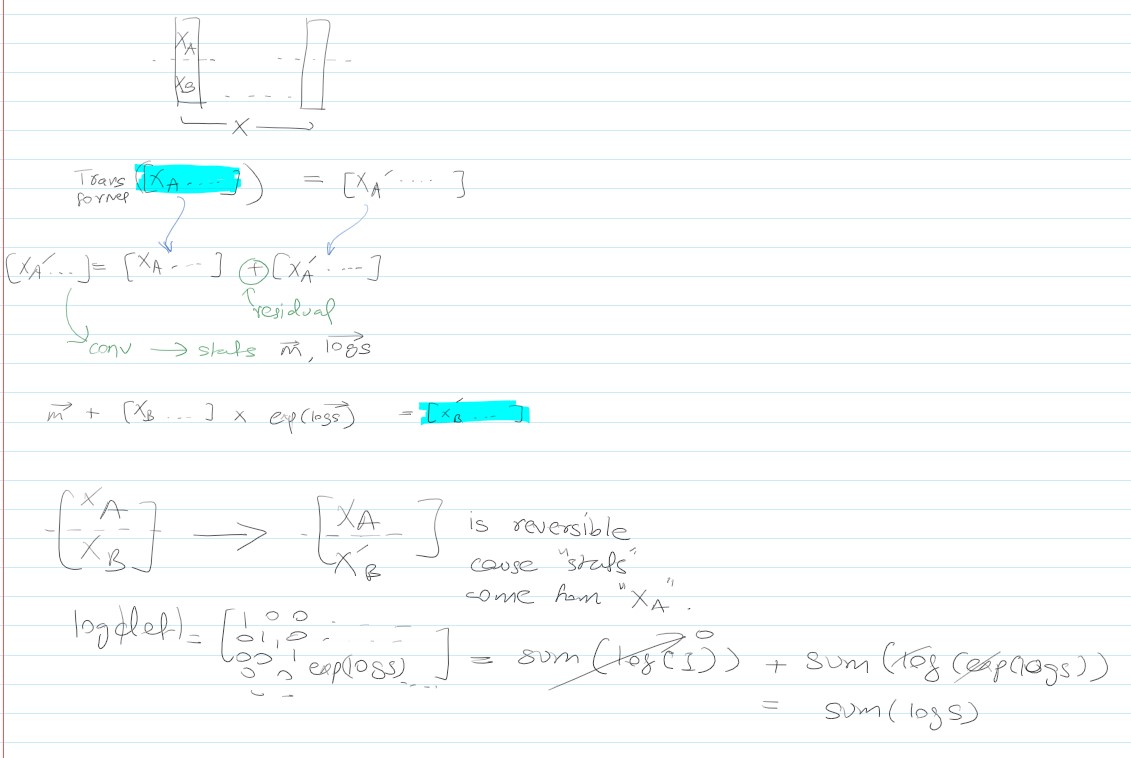 X_A
X_B
X
Trans
former ([X_A ....]) = [X_A' .... ]
[X_A' ...] = [X_A ....] ⊕ [X_A' ....]
residual
conv → stats m⃗, logs⃗
m⃗ + [X_B ....] × exp(logs⃗) = [X_B' ....]
[X_A / X_B] → [X_A / X_B'] is reversible
cause "stats"
come from "X_A".
log(det) = [1 0 0 / 0 1, 0 / 0 0 1 / 0 0 exp(logs)] = sum(log(I)) 0 + sum(log(exp(logs))
= sum(logs)